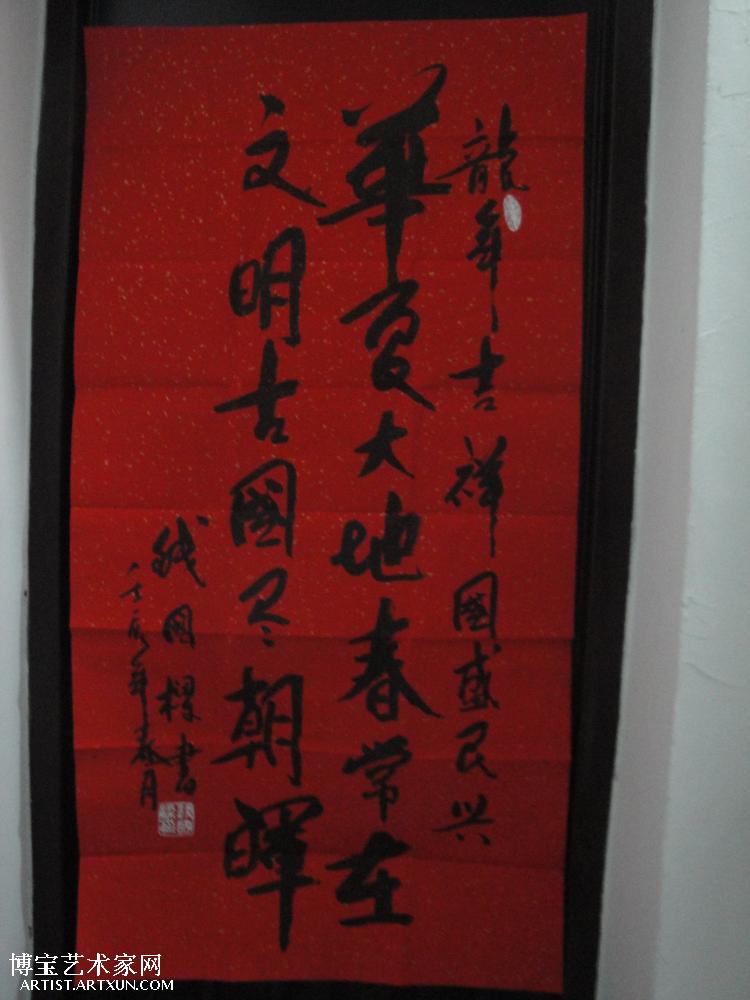 龍年吉祥國盛民兴
華夏大地春常在
文明古國尽朝暉
國樑書
壬辰年春月
博宝艺术家网
ARTIST.ARTXUN.COM